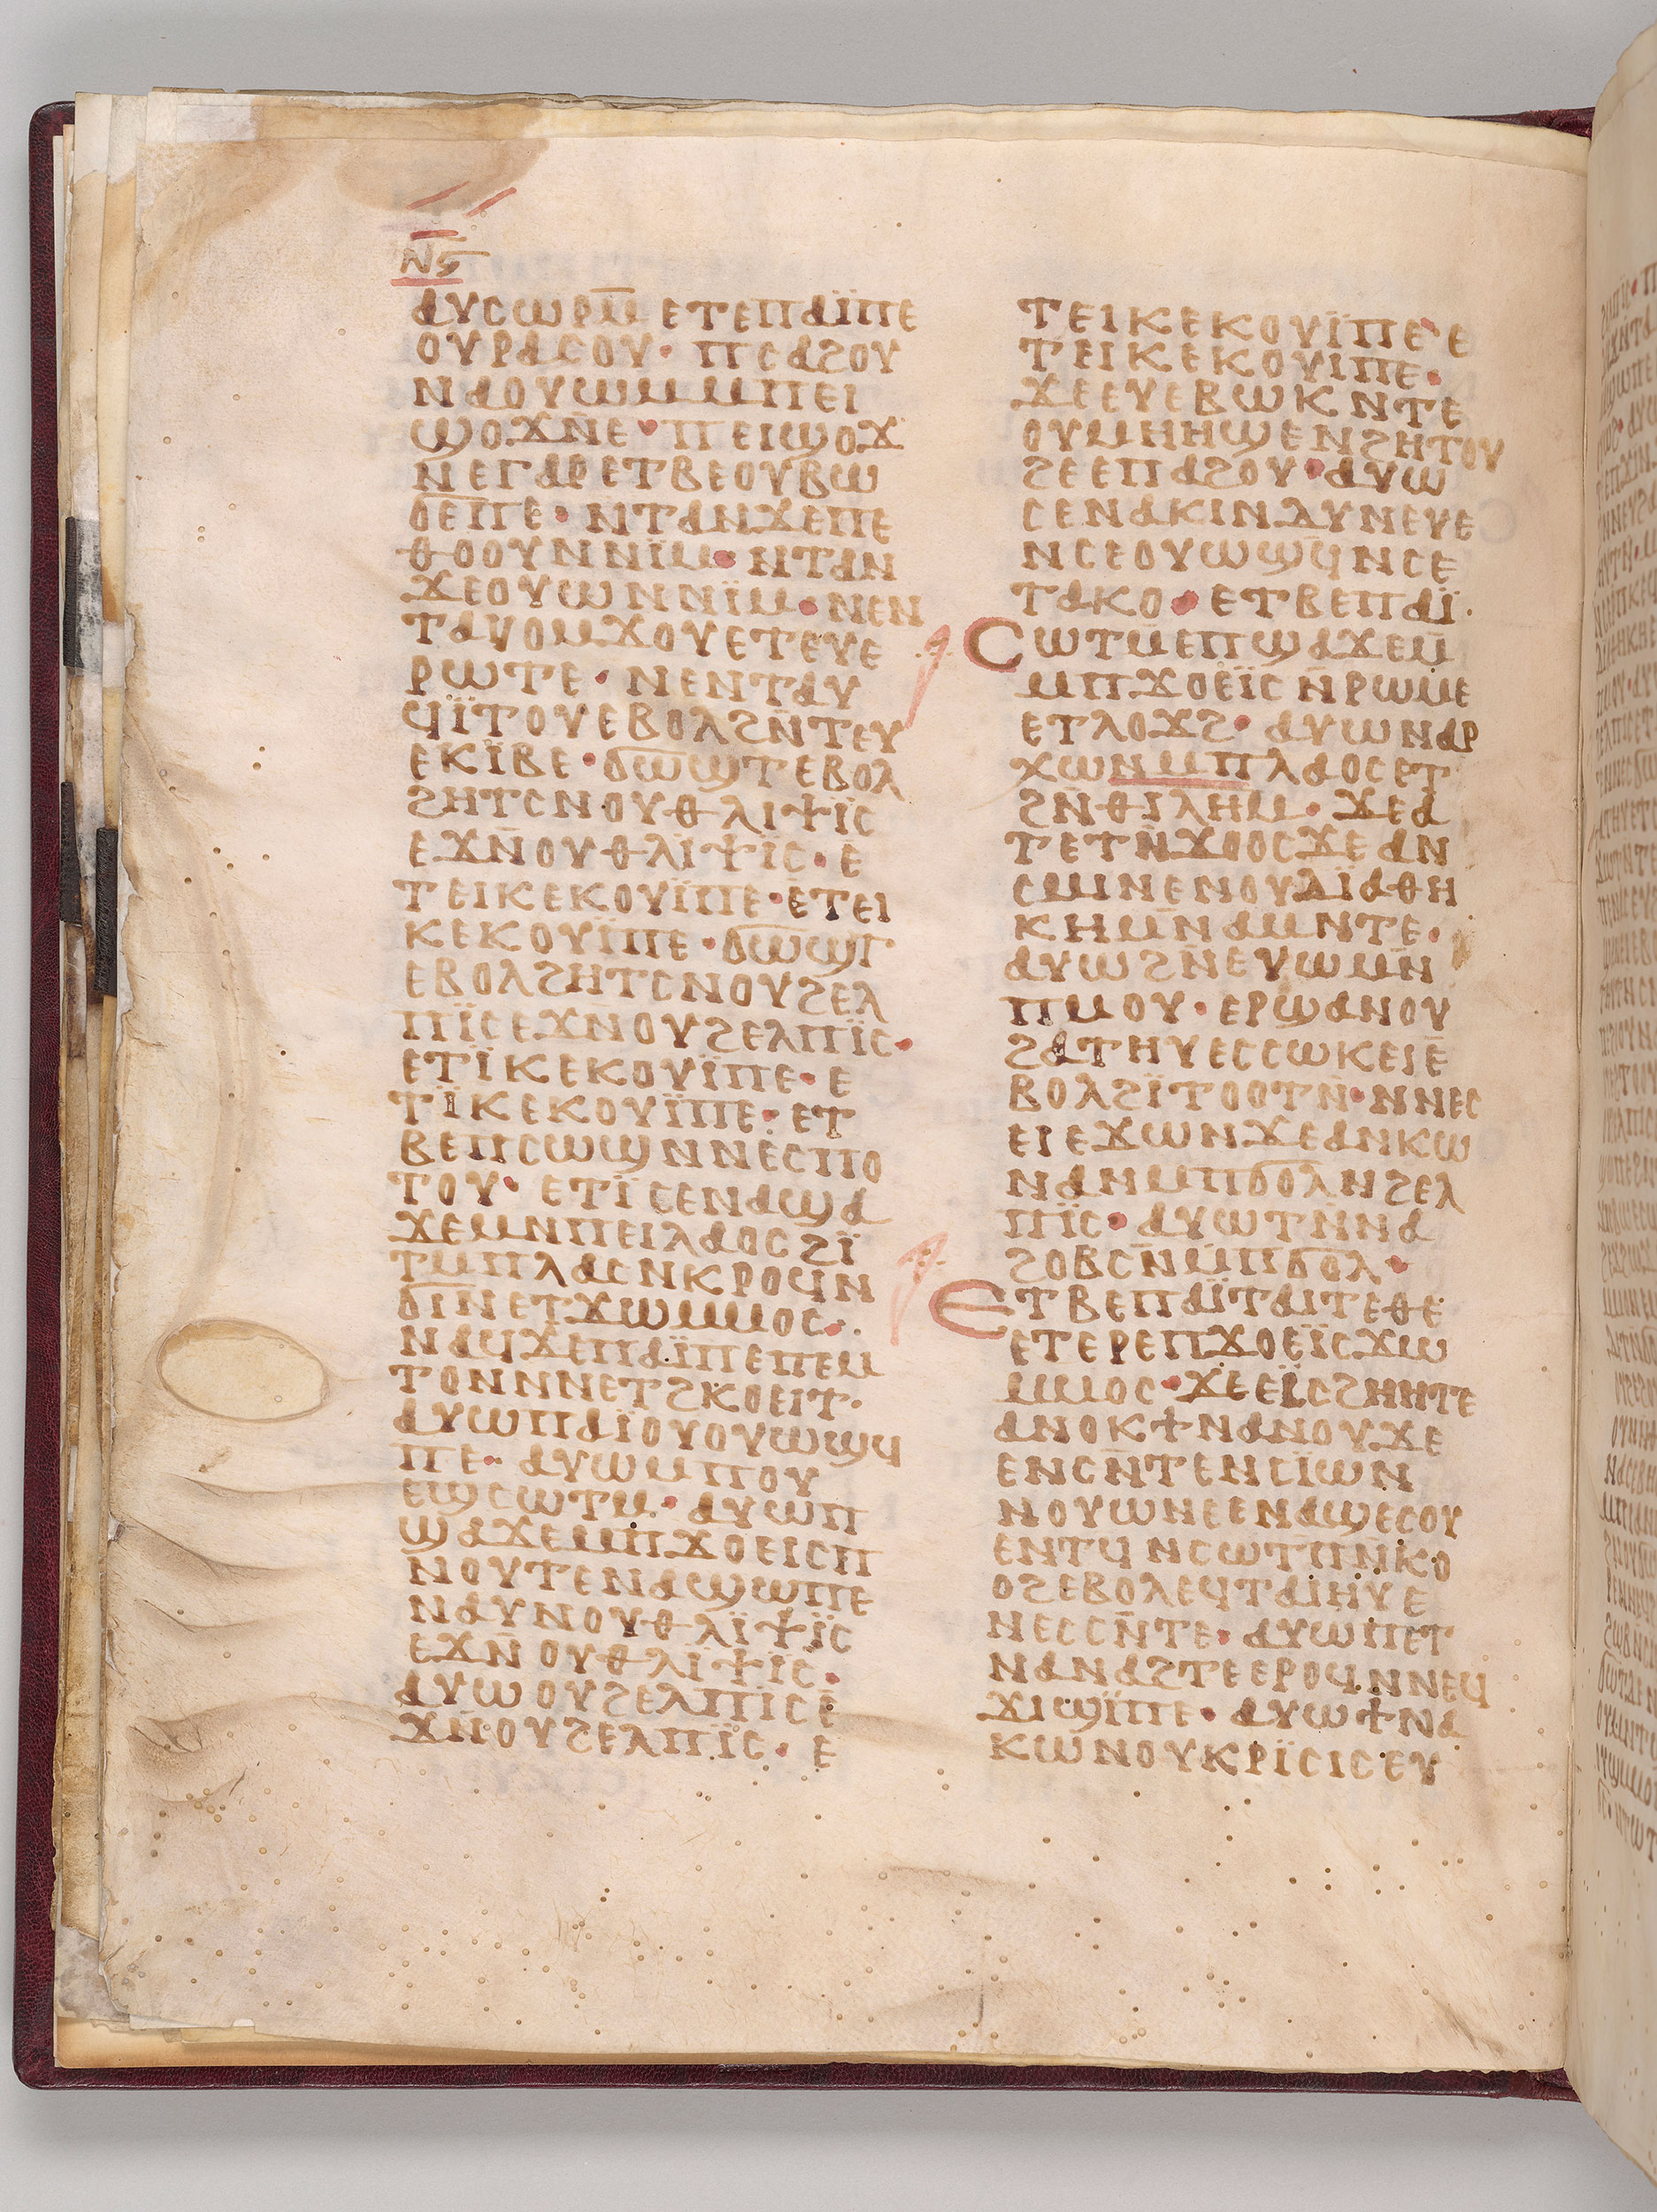 ⲛ̅ⲋ̅
ⲁⲩⲥⲱⲣⲙ̅ ⲉⲧⲉⲡⲁⲓ̈ⲡⲉ
ⲟⲩⲣⲁⲥⲟⲩ· ⲡⲥⲁϩⲟⲩ
ⲛⲁⲟⲩⲱⲙⲙⲡⲉⲓ
ϣⲟϫⲛ̅ⲉ· ⲡⲉⲓϣⲟϫ
ⲛⲉⲅⲁⲣⲉⲧⲃⲉⲟⲩⲃⲱ
ϭⲉⲡⲉ· ⲛⲧⲁⲛϫⲉⲡⲉ
ⲑⲟⲟⲩⲛⲛⲓ̈ⲙ· ⲛⲧⲁⲛ
ϫⲉⲟⲩⲱⲛⲛⲓ̈ⲙ· ⲛⲉⲛ
ⲧⲁⲩⲟⲙϫⲟⲩⲉⲧⲉⲩⲉ
ⲣⲱⲧⲉ· ⲛⲉⲛⲧⲁⲩ
ϥⲓ̈ⲧⲟⲩⲉⲃⲟⲗϩⲛ̅ⲧⲉⲩ
ⲉⲕⲓ̈ⲃⲉ· ϭⲱϣⲧⲉⲃⲟⲗ
ϩⲏⲧⲥⲛⲟⲩⲑⲗⲓⲯⲓ̈ⲥ
ⲉϫⲛ̅ⲟⲩⲑⲗⲓ̈ⲯⲓⲥ· ⲉ
ⲧⲉⲓⲕⲉⲕⲟⲩⲓ̈ⲡⲉ· ⲉⲧⲉⲓ
ⲕⲉⲕⲟⲩⲓ̈ⲡⲉ· ϭⲱϣⲧ
ⲉⲃⲟⲗϩⲏⲧⲥⲛⲟⲩϩⲉⲗ
ⲡⲓ̈ⲥⲉϫⲛ̅ⲟⲩϩⲉⲗⲡⲓ̈ⲥ·
ⲉⲧⲓ̈ⲕⲉⲕⲟⲩⲓ̈ⲡⲉ· ⲉ
ⲧⲓ̈ⲕⲉⲕⲟⲩⲓ̈ⲡⲉ· ⲉⲧ
ⲃⲉⲡⲥⲱϣⲛⲛⲉⲥⲡⲟ
ⲧⲟⲩ· ⲉⲧⲓ̈ ⲥⲉⲛⲁϣⲁ
ϫⲉⲙⲛⲡⲉⲓⲗⲁⲟⲥ ϩⲓ̈
ⲧⲙⲡⲗⲁⲥⲛⲕⲣⲟϥⲛ
ϭⲓⲛⲉⲧϫⲱⲙⲙⲟⲥ·
ⲛⲁϥϫⲉⲡⲁⲓ̈ⲡⲉⲡⲉⲙ
ⲧⲟⲛⲛⲛⲉⲧϩⲕⲟⲉⲓⲧ·
ⲁⲩⲱⲡⲁⲓ̈ⲟⲩⲟⲩⲱϣϥ
ⲡⲉ· ⲁⲩⲱⲙⲡⲟⲩ
ⲉϣⲥⲱⲧⲙ· ⲁⲩⲱⲡ
ϣⲁϫⲉⲙⲡϫⲟⲉⲓⲥⲡ
ⲛⲟⲩⲧⲉⲛⲁϣⲱⲡⲉ
ⲛⲁⲩⲛⲟⲩⲑⲗⲓ̈ⲯⲓ̈ⲥ
ⲉϫⲛ̅ ⲟⲩⲑⲗⲓ̈ⲯⲓ̈ⲥ·
ⲁⲩⲱⲟⲩϩⲉⲗⲡⲓⲥⲉ
ϫⲛ̅ⲟⲩϩⲉⲗⲡⲓ̈ⲥ· ⲉ
ⲧⲉⲓⲕⲉⲕⲟⲩⲓ̈ⲡⲉ· ⲉ
ⲧⲉⲓⲕⲉⲕⲟⲩⲓⲡⲉ·
ϫⲉⲉⲩⲉⲃⲱⲕ ⲛⲧⲉ
ⲟⲩⲙⲏⲏϣⲉⲛϩⲏⲧⲟⲩ
ϩⲉⲉⲡⲁϩⲟⲩ· ⲁⲩⲱ
ⲥⲉⲛⲁⲕⲓⲛⲇⲩⲛⲉⲩⲉ
ⲛⲥⲉⲟⲩⲱϣϥⲛⲥⲉ
ⲧⲁⲕⲟ· ⲉⲧⲃⲉⲡⲁⲓ̈·
ⲥⲱⲧⲙⲉⲡϣⲁϫⲉⲙ̅
ⲙⲡϫⲟⲉⲓ̈ⲥ ⲛ̅ⲣⲱⲙⲉ
ⲉⲧⲗⲟϫϩ· ⲁⲩⲱⲛⲁⲣ
ⲭⲱⲛⲙⲡⲗⲁⲟⲥⲉⲧ
ϩⲛ̅ⲑⲓⲗⲏⲙ· ϫⲉⲁ
ⲧⲉⲧⲛ̅ϫⲟⲟⲥϫⲉ ⲁⲛ
ⲥⲙⲛⲉⲛⲟⲩⲇⲓⲁⲑⲏ
ⲕⲏⲙⲛ̅ⲁⲙⲛⲧⲉ·
ⲁⲩⲱϩⲛ̅ⲉⲩⲱⲙⲛ̅
ⲡⲙⲟⲩ· ⲉⲣϣⲁⲛⲟⲩ
ϩⲁⲧⲏⲩⲉⲥⲥⲱⲕⲉⲓⲉ̅
ⲃⲟⲗϩⲓ̈ⲧⲟⲟⲧⲛ̅· ⲛⲛⲉⲥ
ⲉⲓ ⲉϫⲱⲛϫⲉⲁⲛⲕⲱ
ⲛⲁⲛⲙⲡϭⲟⲗⲛϩⲉⲗ
ⲡⲓ̈ⲥ· ⲁⲩⲱⲧⲛ̅ⲛⲁ
ϩⲟⲃⲥⲛ̅ⲙⲡϭⲟⲗ·
ⲉⲧⲃⲉⲡⲁⲓ̈ⲧⲁⲓⲧⲉⲑⲉ
ⲉⲧⲉⲣⲉⲡϫⲟⲉⲓ̈ⲥϫⲱ
ⲙⲙⲟⲥ· ϫⲉⲉⲓ̈ⲥϩⲏⲏⲧⲉ
ⲁⲛⲟⲕϯⲛⲁⲛⲟⲩϫⲉ
ⲉⲛⲥⲛ̅ⲧⲉⲛⲥⲓ̈ⲱⲛ
ⲛⲟⲩⲱⲛⲉⲉⲛⲁϣⲉⲥⲟⲩ
ⲉⲛⲧϥ ⲛⲥⲱⲧⲡⲛⲕⲟ
ⲟϩⲉⲃⲟⲗⲉϥⲧⲁⲓⲏⲩⲉ
ⲛⲉⲥⲥⲛ̅ⲧⲉ· ⲁⲩⲱⲡⲉⲧ
ⲛⲁⲛⲁϩⲧⲉⲉⲣⲟϥⲛⲛⲉϥ
ϫⲓϣⲓ̈ⲡⲉ· ⲁⲩⲱϯⲛⲁ
ⲕⲱⲛⲟⲩⲕⲣⲓ̈ⲥⲓⲥⲉⲩ